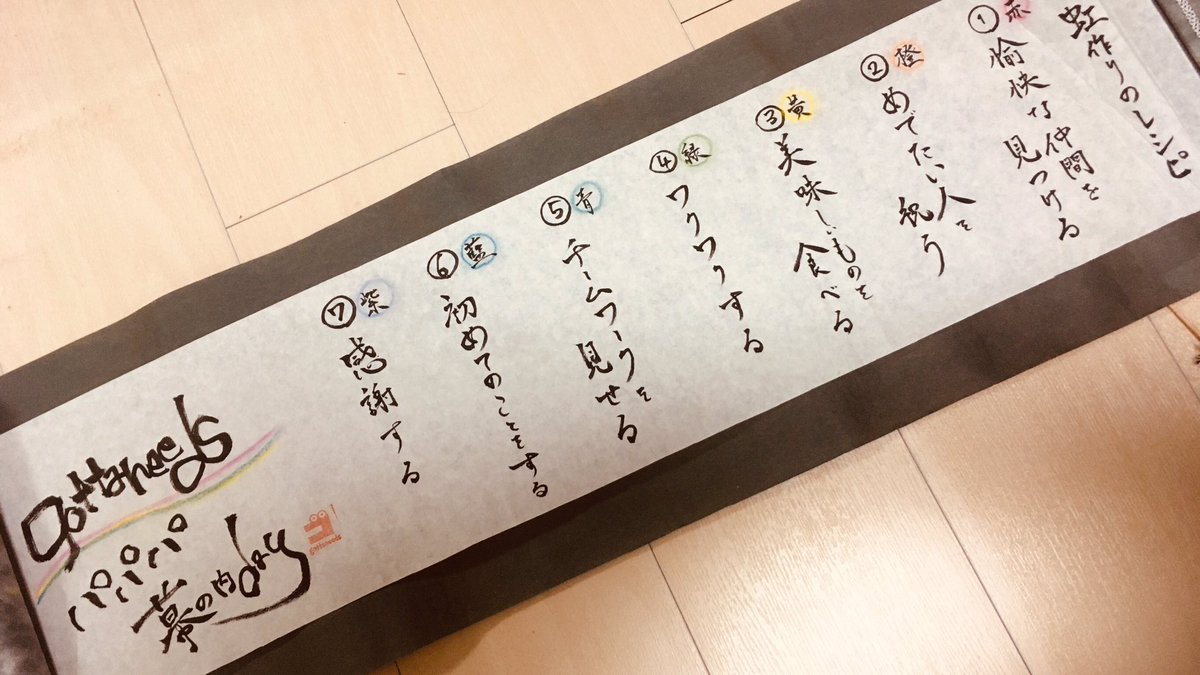 虹作りのレシピ
① 赤
愉快な仲間を
見つける
② 橙
めでたい人を
祝う
③ 黄
美味しいものを
食べる
④ 緑
ワクワクする
⑤ 青
チームワークを
見せる
⑥ 藍
初めてのことをする
⑦ 紫
感謝する
パパパ
幕の内day